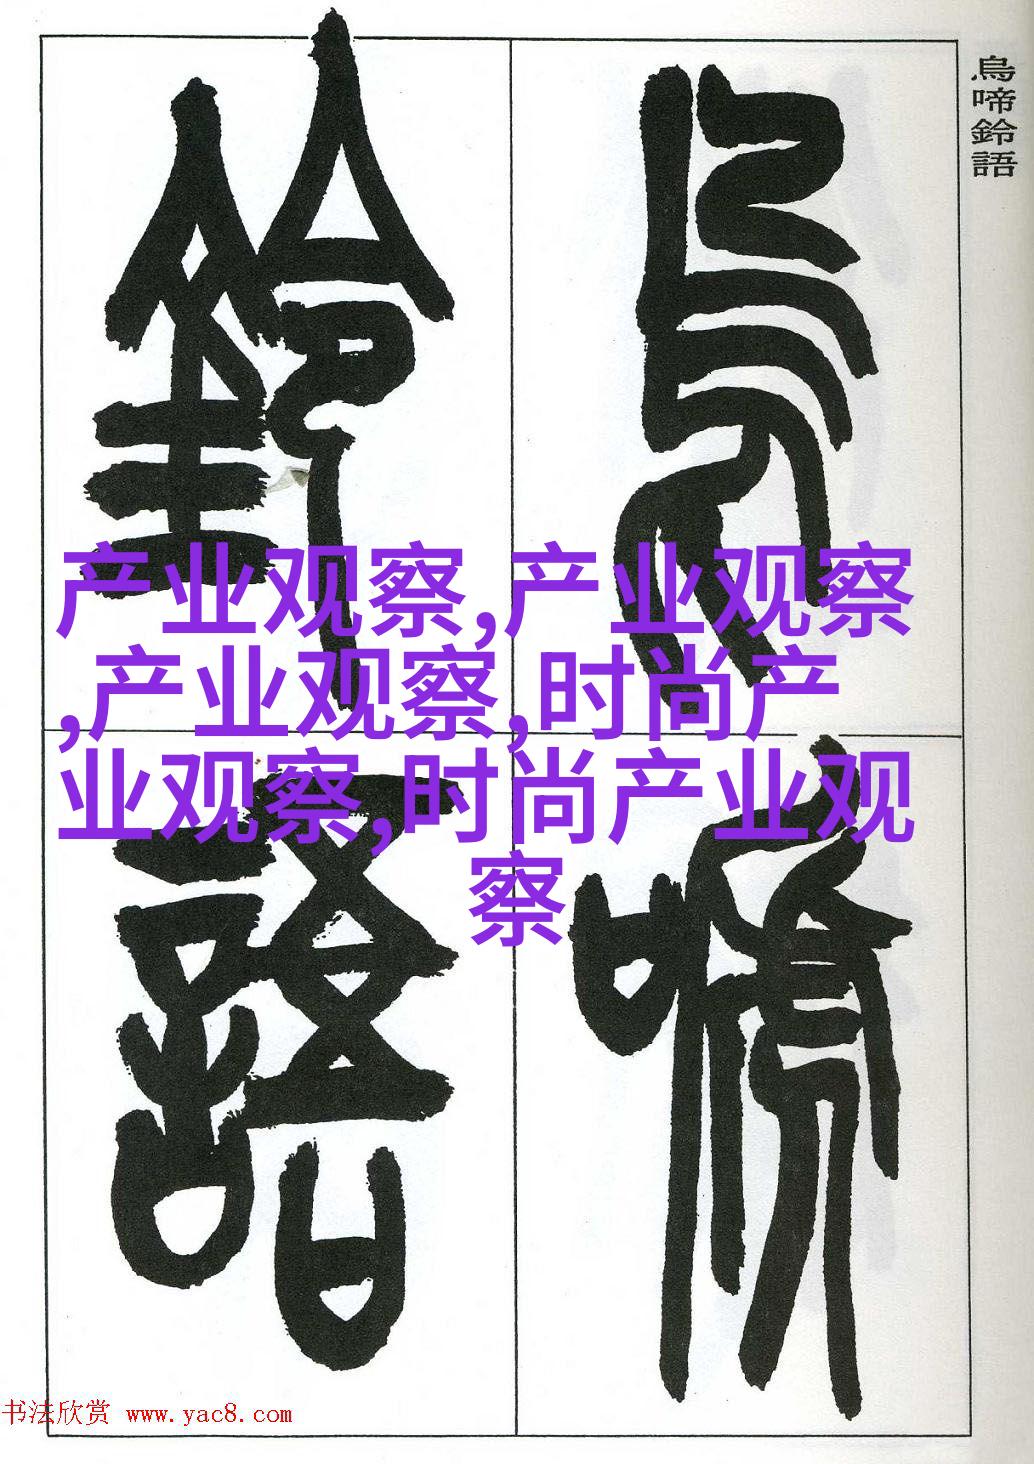 鳥啼鈴語
鳥啼
鈴語
产业观察,产业观察
,产业观察,时尚产
业观察,时尚产业观
察
书法欣赏 www.yac8.com